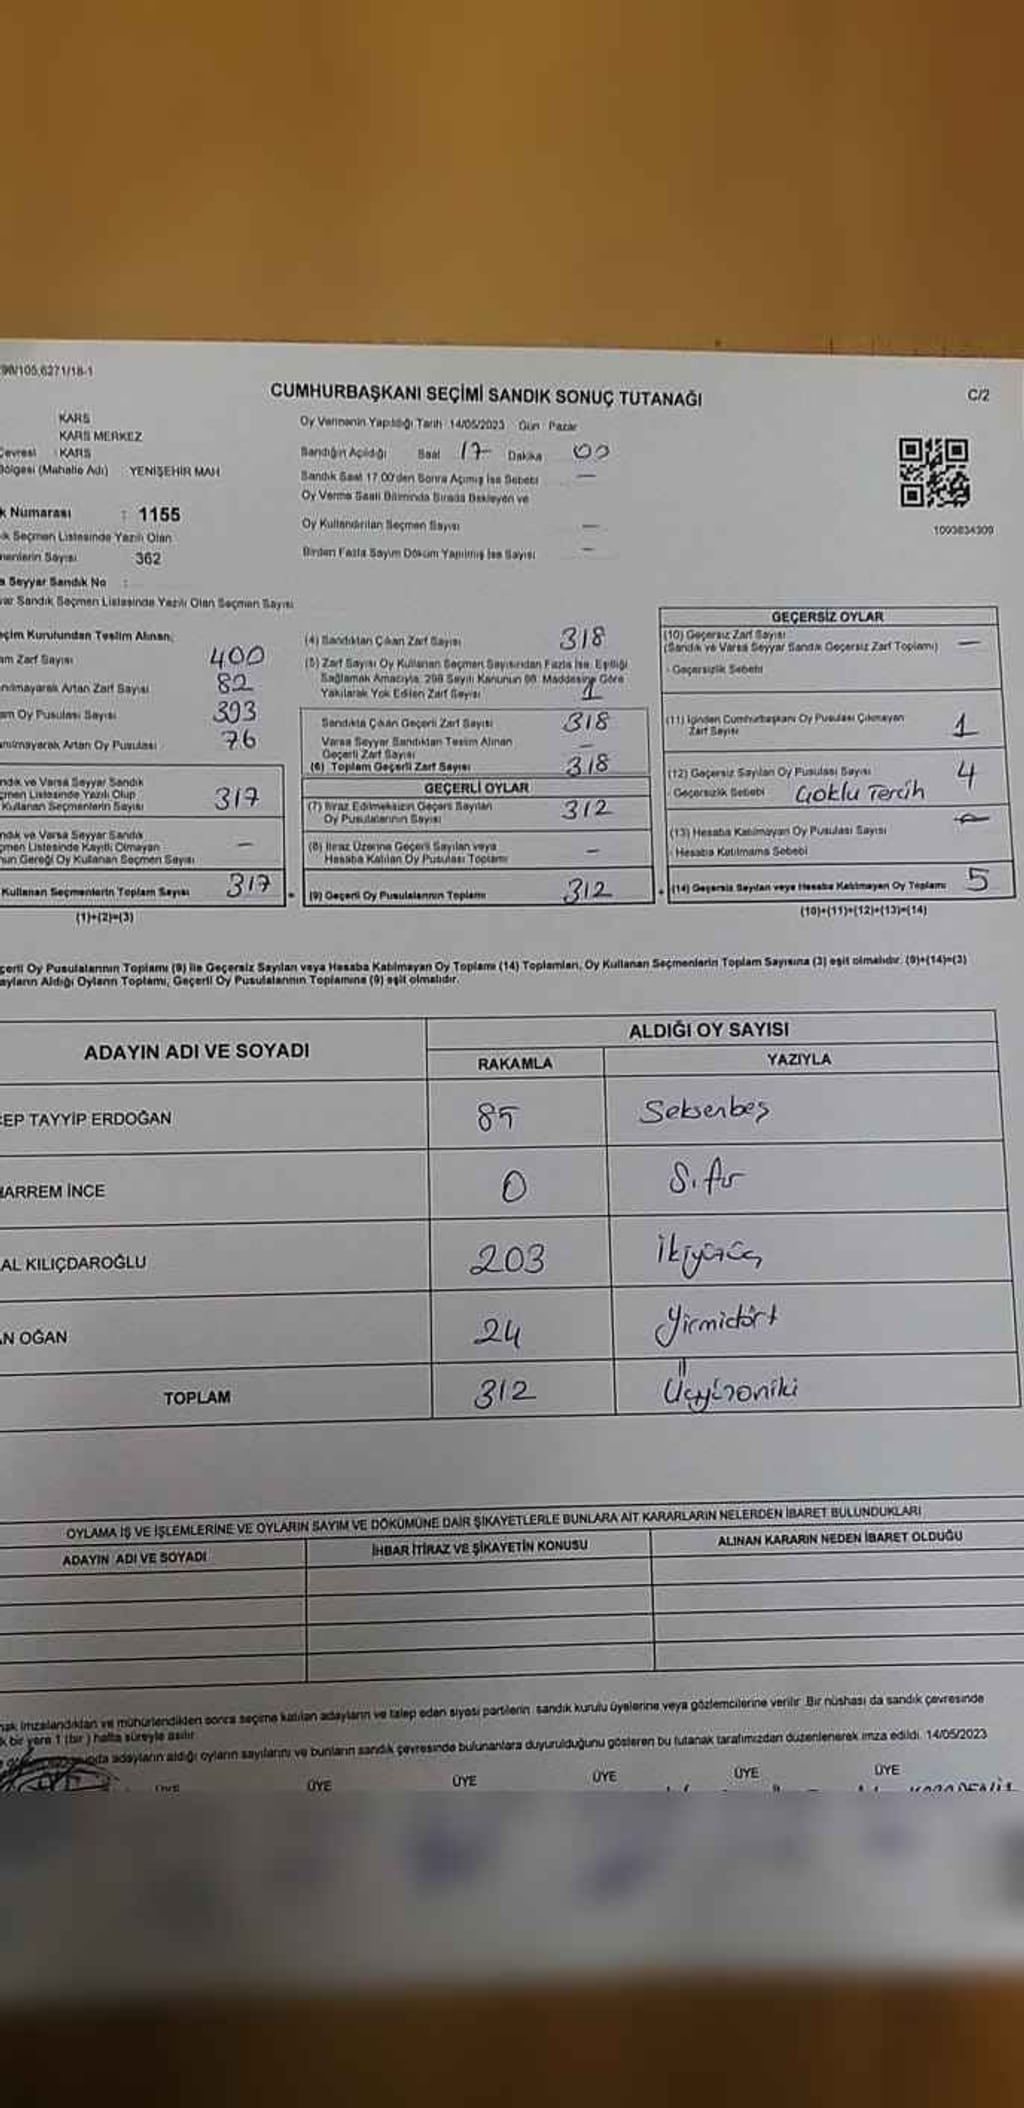 298/105,6271/18-1
CUMHURBAŞKANI SEÇİMİ SANDIK SONUÇ TUTANAĞI
C/2
KARS
KARS MERKEZ
Çevresi : KARS
Bölgesi (Mahalle Adı) YENİŞEHİR MAH.
k Numarası : 1155
k Seçmen Listesinde Yazılı Olan
menlerin Sayısı 362
a Seyyar Sandık No :
var Sandık Seçmen Listesinde Yazılı Olan Seçmen Sayısı
Oy Vermenin Yapıldığı Tarih 14/05/2023 Gün Pazar
Sandığın Açıldığı Saat 17 Dakika 00
Sandık Saat 17.00'den Sonra Açılmış İse Sebebi —
Oy Verme Saati Bitiminde Sırada Bekleyen ve
Oy Kullandırılan Seçmen Sayısı —
Birden Fazla Sayım Döküm Yapılmış İse Sayısı —
1003634309
eçim Kurulundan Teslim Alınan,
am Zarf Sayısı 400
nılmayarak Artan Zarf Sayısı 82
am Oy Pusulası Sayısı 393
anılmayarak Artan Oy Pusulası 76
ndık ve Varsa Seyyar Sandık
çmen Listesinde Yazılı Olup
Kullanan Seçmenlerin Sayısı 317
ndık ve Varsa Seyyar Sandık
çmen Listesinde Kayıtlı Olmayan
nun Gereği Oy Kullanan Seçmen Sayısı —
Kullanan Seçmenlerin Toplam Sayısı 317
(1)+(2)=(3)
(4) Sandıktan Çıkan Zarf Sayısı 318
(5) Zarf Sayısı Oy Kullanan Seçmen Sayısından Fazla İse, Eşitliği
Sağlamak Amacıyla, 298 Sayılı Kanunun 98. Maddesine Göre
Yakılarak Yok Edilen Zarf Sayısı 1
Sandıkta Çıkan Geçerli Zarf Sayısı 318
Varsa Seyyar Sandıktan Teslim Alınan
Geçerli Zarf Sayısı —
(6) Toplam Geçerli Zarf Sayısı 318
GEÇERLİ OYLAR
(7) İtiraz Edilmeksizin Geçerli Sayılan
Oy Pusulalarının Sayısı 312
(8) İtiraz Üzerine Geçerli Sayılan veya
Hesaba Katılan Oy Pusulası Toplamı —
(9) Geçerli Oy Pusulalarının Toplamı 312
GEÇERSİZ OYLAR
(10) Geçersiz Zarf Sayısı
(Sandık ve Varsa Seyyar Sandık Geçersiz Zarf Toplamı) —
- Geçersizlik Sebebi
(11) İçinden Cumhurbaşkanı Oy Pusulası Çıkmayan
Zarf Sayısı 1
(12) Geçersiz Sayılan Oy Pusulası Sayısı 4
- Geçersizlik Sebebi Çoklu Tercih
(13) Hesaba Katılmayan Oy Pusulası Sayısı
- Hesaba Katılmama Sebebi
(14) Geçersiz Sayılan veya Hesaba Katılmayan Oy Toplamı 5
(10)+(11)+(12)+(13)=(14)
çerli Oy Pusulalarının Toplamı (9) ile Geçersiz Sayılan veya Hesaba Katılmayan Oy Toplamı (14) Toplamları, Oy Kullanan Seçmenlerin Toplam Sayısına (3) eşit olmalıdır. (9)+(14)=(3)
ayların Aldığı Oyların Toplamı, Geçerli Oy Pusulalarının Toplamına (9) eşit olmalıdır.
ADAYIN ADI VE SOYADI
ALDIĞI OY SAYISI
RAKAMLA YAZIYLA
CEP TAYYİP ERDOĞAN 85 Seksenbeş
HARREM İNCE 0 Sıfır
AL KILIÇDAROĞLU 203 İkiyüzüç
AN OĞAN 24 Yirmidört
TOPLAM 312 Üçyüzoniki
OYLAMA İŞ VE İŞLEMLERİNE VE OYLARIN SAYIM VE DÖKÜMÜNE DAİR ŞİKAYETLERLE BUNLARA AİT KARARLARIN NELERDEN İBARET BULUNDUKLARI
ADAYIN ADI VE SOYADI İHBAR İTİRAZ VE ŞİKAYETİN KONUSU ALINAN KARARIN NEDEN İBARET OLDUĞU
nak imzalandıktan ve mühürlendikten sonra seçime katılan adayların ve talep eden siyasi partilerin sandık kurulu üyelerine veya gözlemcilerine verilir. Bir nüshası da sandık çevresinde
k bir yere 1 (bir) hafta süreyle asılır.
adayların aldığı oyların sayılarını ve bunların sandık çevresinde bulunanlara duyurulduğunu gösteren bu tutanak tarafımızdan düzenlenerek imza edildi. 14/05/2023
ÜYE ÜYE ÜYE ÜYE ÜYE ÜYE